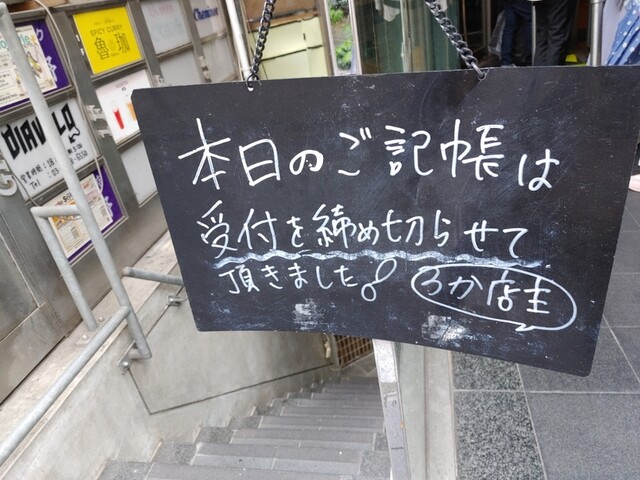 SPICY CURRY
魯珈
DIAVOLO
本日のご記帳は
受付を締め切らせて
頂きました!
ろか店主